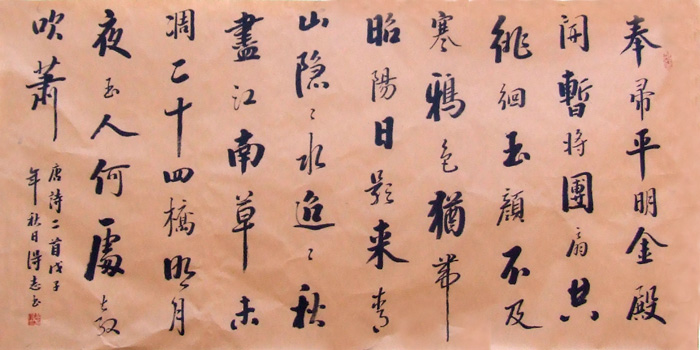 奉帚平明金殿
開暫将團扇共
徘徊玉顔不及
寒鴉色猶帶
昭陽日影来青
山隐〻水迢〻秋
盡江南草未
凋二十四橋明月
夜玉人何處教
吹蕭
唐詩二首戊子
年秋日得志书